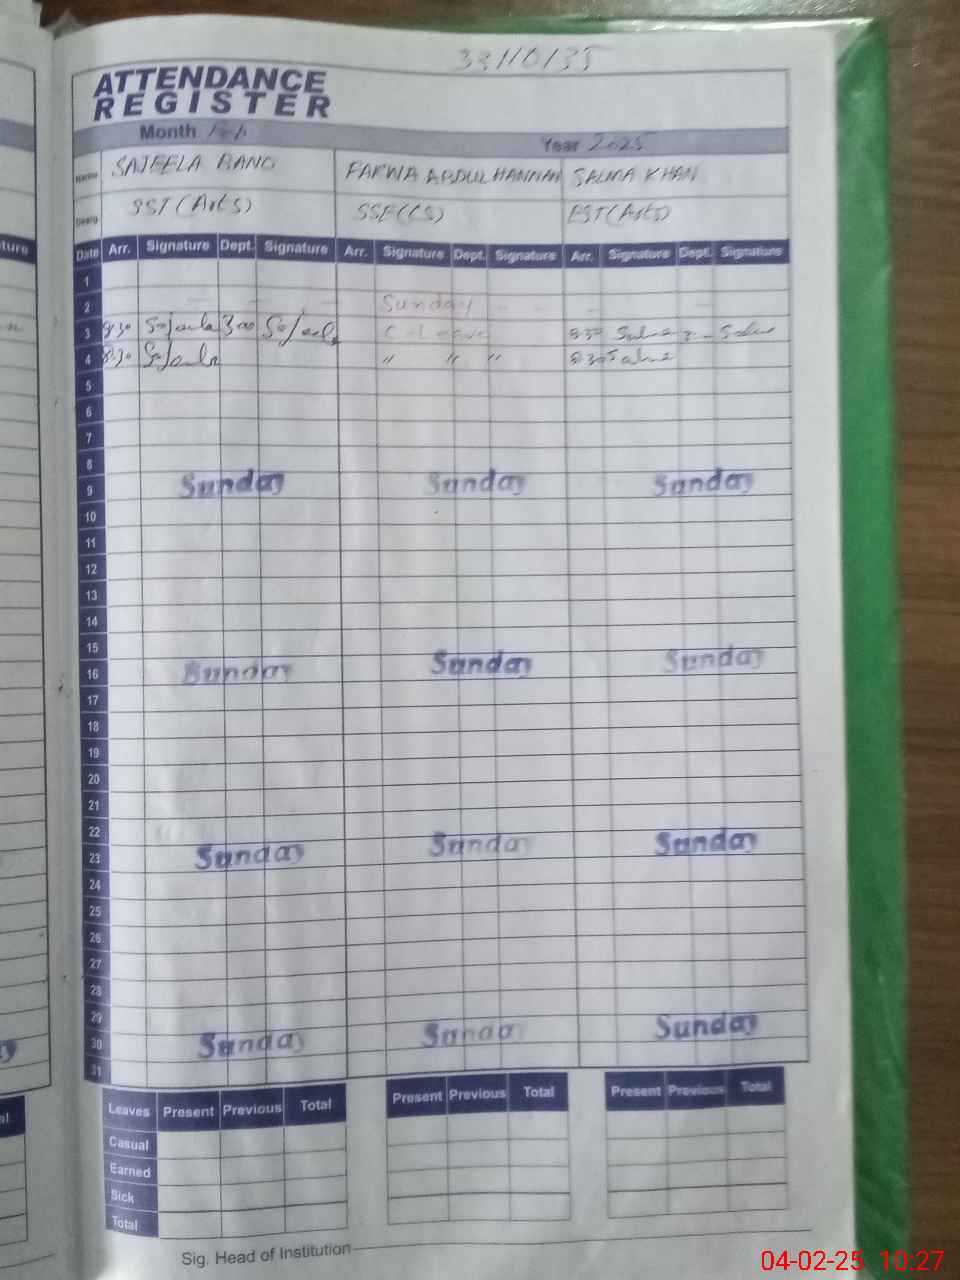 33110135
ATTENDANCE
REGISTER
Month Feb Year 2025
Name SAJEELA BANO FARWA ABDUL HANNAN SALMA KHAN
Desig SST (Arts) SSE (CS) EST (Arts)
Date Arr. Signature Dept. Signature Arr. Signature Dept. Signature Arr. Signature Dept. Signature
1
2 Sunday
3 8:30 Sajeela 3:00 Sajeela C-Leave 8:30 Salma Salma
4 8:30 Sajeela " " " 8:30 Salma
5
6
7
8
9 Sunday Sunday Sunday
10
11
12
13
14
15
16 Sunday Sunday Sunday
17
18
19
20
21
22
23 Sunday Sunday Sunday
24
25
26
27
28
29
30 Sunday Sunday Sunday
31
Leaves Present Previous Total Present Previous Total Present Previous Total
Casual
Earned
Sick
Total
Sig. Head of Institution
04-02-25 10:27